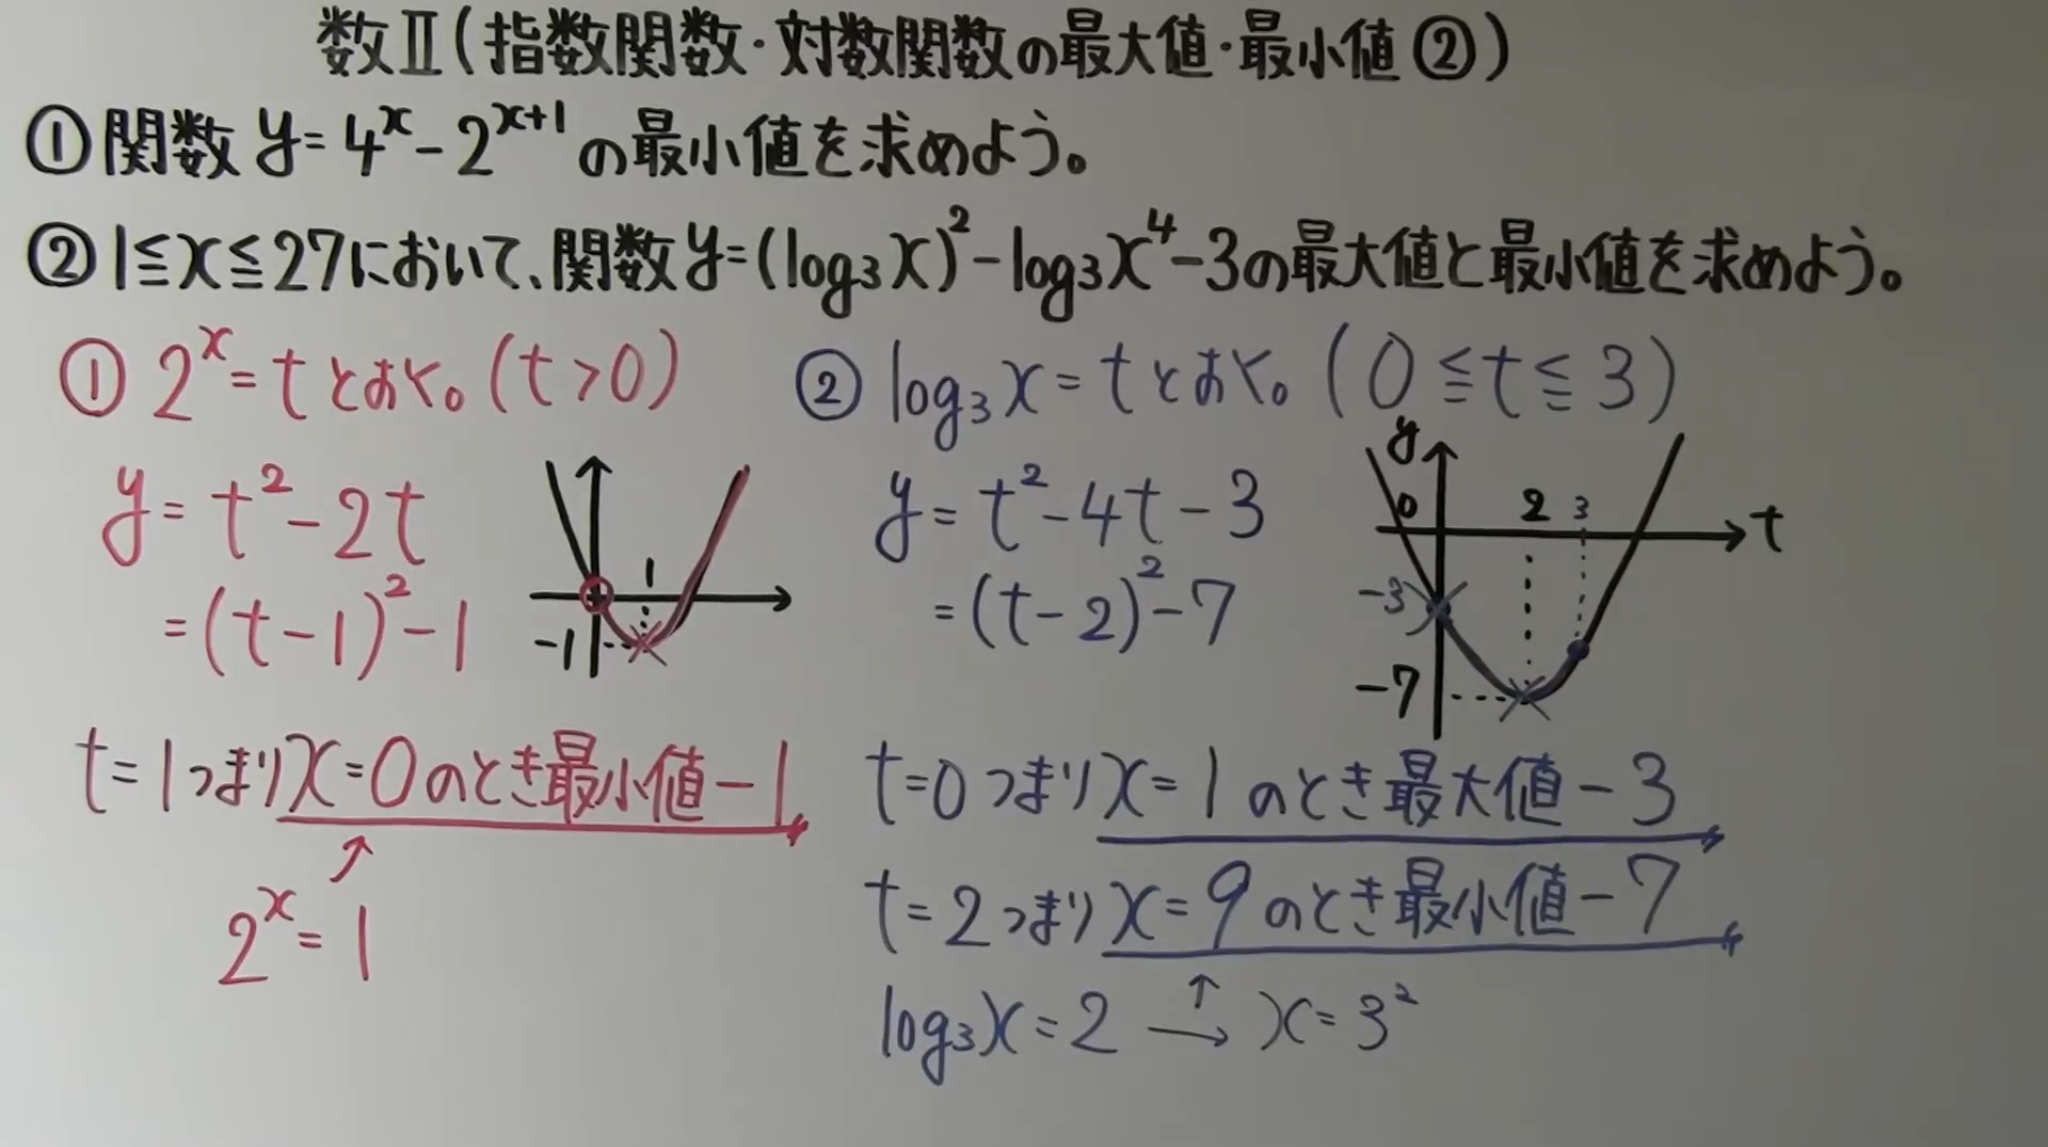 数Ⅱ(指数関数・対数関数の最大値・最小値②)
①関数 y=4^x-2^{x+1}の最小値を求めよう。
②1≦x≦27において、関数y=(log₃x)²-log₃x⁴-3の最大値と最小値を求めよう。
① 2^x=tとおく。(t>0)
y=t²-2t
=(t-1)²-1
1
-1
t=1つまりx=0のとき最小値-1
↑
2^x=1
② log₃x=tとおく。(0≦t≦3)
y=t²-4t-3
=(t-2)²-7
y
0 2 3 t
-3
-7
t=0つまりx=1のとき最大値-3
t=2つまりx=9のとき最小値-7
↑
log₃x=2 → x=3²